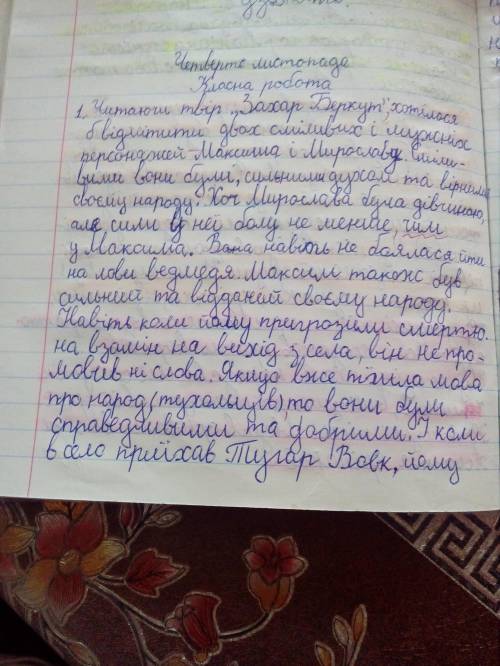 Четверте листопада
Класна робота
1. Читаючи твір „Захар Беркут", хотілося
б відмітити двох сміливих і мужніх
персонжей Максима і Мирославу. Сміли-
вими вони були, сильними духом та вірними
своєму народу. Хоч Мирослава була дівчиною,
але сили у неї було не менше, чим
у Максима. Вона навіть не боялася йти
на лови ведмедя. Максим також був
сильний та відданий своєму народу.
Навіть коли йому пригрозили смертю
на взамін на вихід з села, він не про-
мовив ні слова. Якщо вже пішла мова
про народ (тухольців), то вони були
справедливими та добрими. І коли
в село приїхав Тугар Вовк, йому